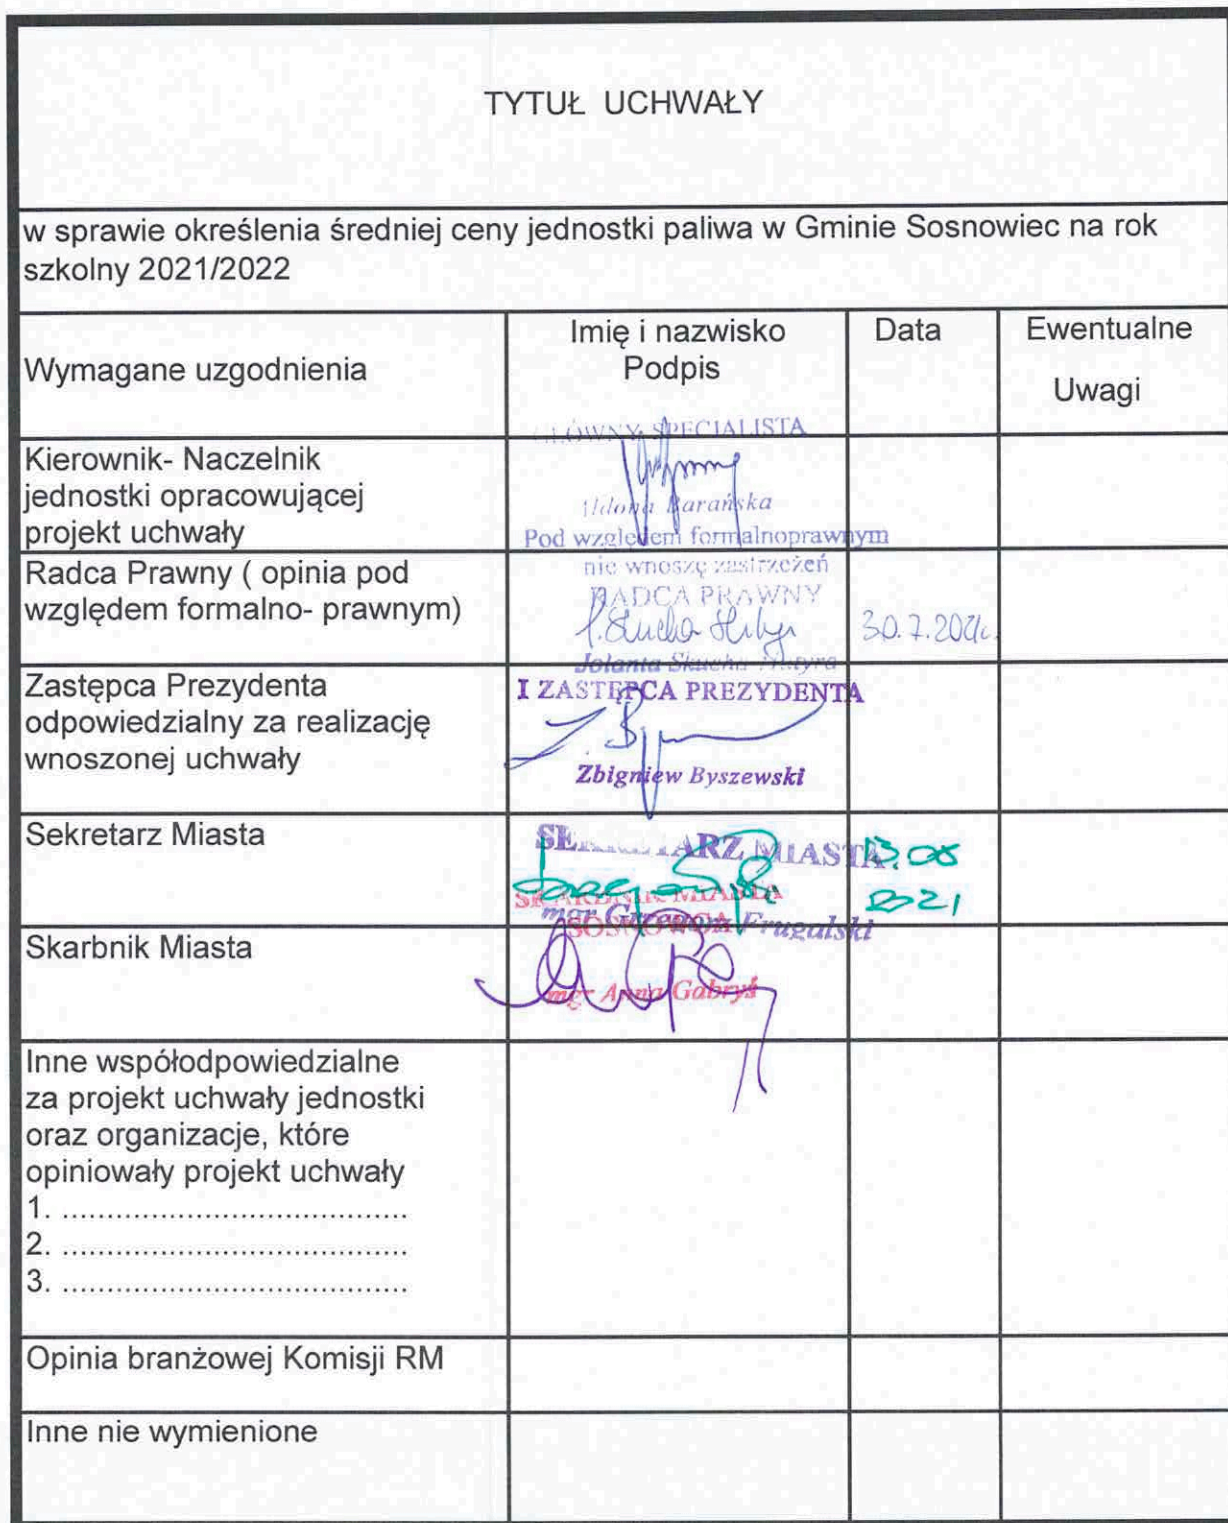 TYTUŁ UCHWAŁY
w sprawie określenia średniej ceny jednostki paliwa w Gminie Sosnowiec na rok
szkolny 2021/2022
Wymagane uzgodnienia
Imię i nazwisko
Podpis
Data
Ewentualne
Uwagi
Kierownik- Naczelnik
jednostki opracowującej
projekt uchwały
GŁÓWNY SPECJALISTA
Barańska
Radca Prawny ( opinia pod
względem formalno- prawnym)
Pod względem formalnoprawnym
nie wnoszę zastrzeżeń
RADCA PRAWNY
Jolanta Skucha
30.7.2021r.
Zastępca Prezydenta
odpowiedzialny za realizację
wnoszonej uchwały
I ZASTĘPCA PREZYDENTA
Zbigniew Byszewski
Sekretarz Miasta
SEKRETARZ MIASTA
mgr Grzegorz Frugalski
13.08
2021
Skarbnik Miasta
SKARBNIK MIASTA
SOSNOWCA
mgr Anna Gabryś
Inne współodpowiedzialne
za projekt uchwały jednostki
oraz organizacje, które
opiniowały projekt uchwały
1. .......................................
2. .......................................
3. .......................................
Opinia branżowej Komisji RM
Inne nie wymienione